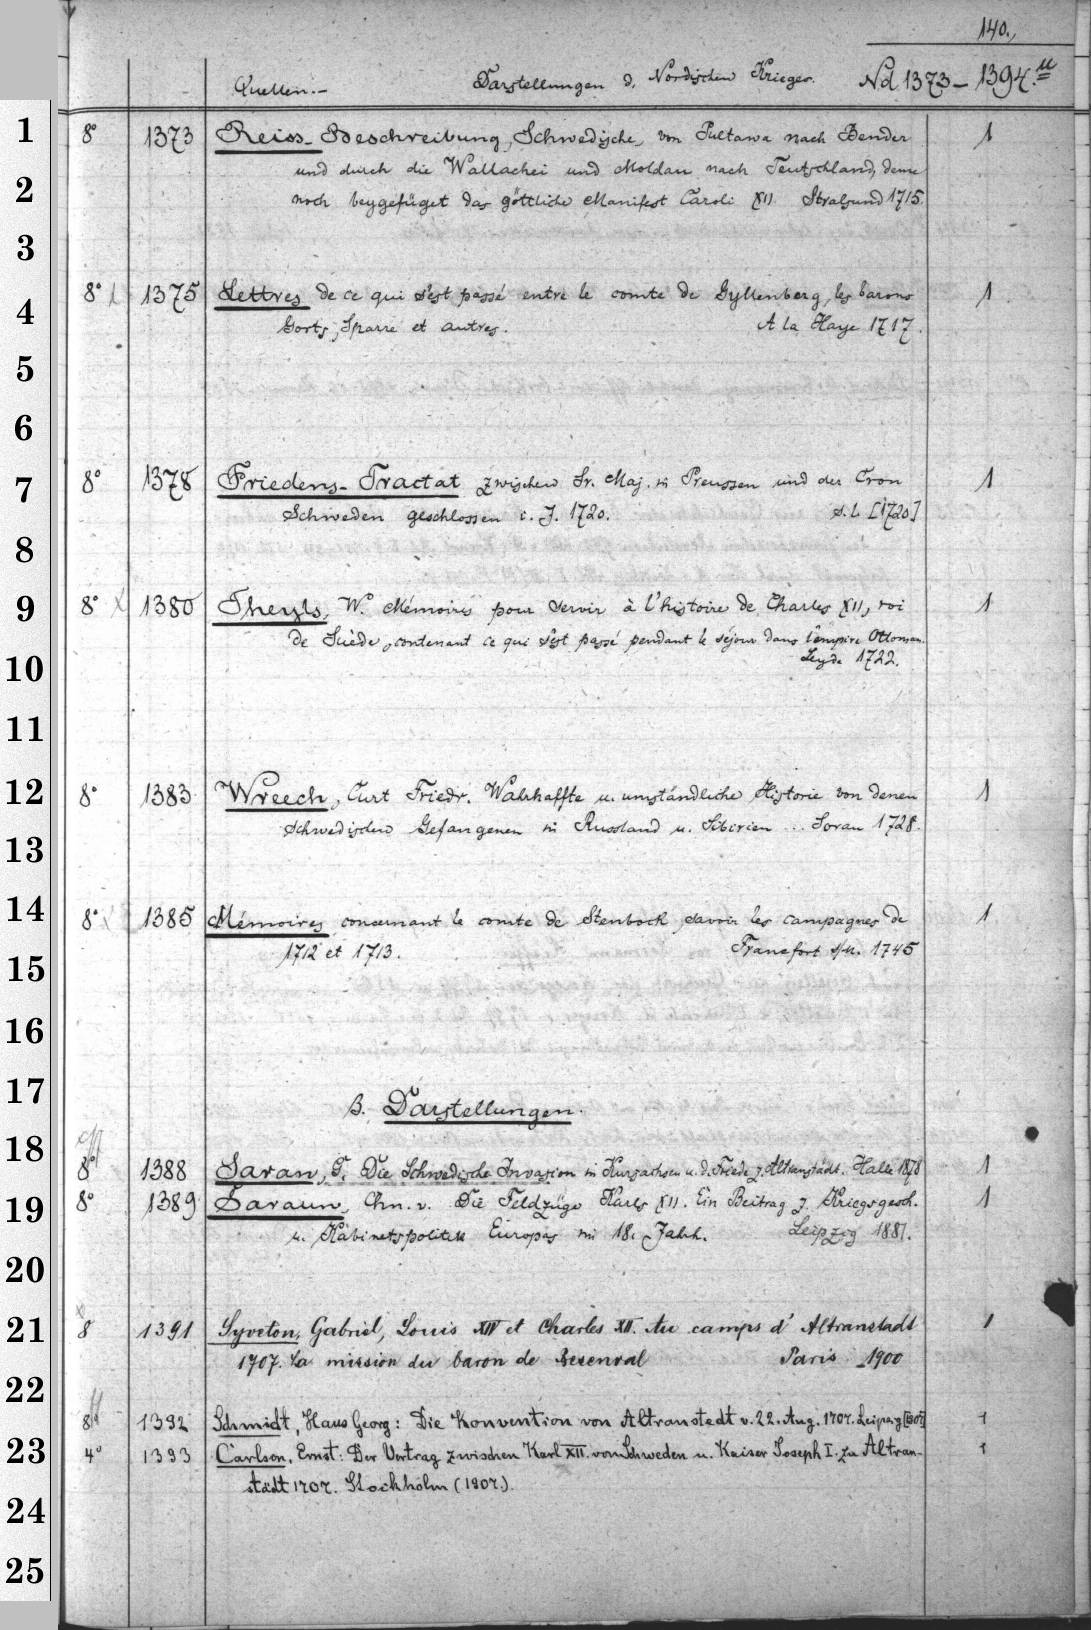 140.
Quellen.- Darstellungen d. Nordischen Krieges. Nd 1373-1394.
8° 1373 Reiss-Beschreibung, Schwedische, von Pultawa nach Bender 1
und durch die Wallachei und Moldau nach Teutschland, deme
noch beygefüget das göttliche Manifest Caroli XII Stralsund 1715.
8° 1375 Lettres de ce qui s'est passé entre le comte de Gyllenberg, les barons 1
Gorts, Sparre et autres. A la Haye 1717.
8° 1378 Friedens-Tractat zwischen Sr. Maj. in Preussen und der Cron 1
Schweden geschlossen i. J. 1720. s.l. [1720]
8° 1380 Theyls, W. Mémoires pour servir à l'histoire de Charles XII, roi 1
de Suède, contenant ce qui s'est passé pendant le séjour dans l'empire Ottoman.
Leyde 1722.
8° 1383 Wreech, Curt Friedr. Wahrhaffte u. umständliche Historie von denen 1
schwedischen Gefangenen in Russland u. Sibirien ... Sorau 1728.
8° 1385 Mémoires concernant le comte de Stenbock, savoir les campagnes de 1
1712 et 1713. Francfort s/M. 1745
B. Darstellungen.
8° 1388 Saran, F. Die Schwedische Invasion in Kursachsen u. d. Friede z. Altranstädt. Halle 1878 1
8° 1389 Saraun, Chn. v. Die Feldzüge Karls XII. Ein Beitrag z. Kriegsgesch. 1
u. Kabinetspolitik Europas im 18. Jahrh. Leipzig 1881.
8 1391 Syveton, Gabriel, Louis XIV et Charles XII. Au camps d'Altranstadt 1
1707. La mission du baron de Besenval Paris 1900
8° 1392 Schmidt, Hans Georg: Die Konvention von Altranstedt v. 22. Aug. 1707. Leipzig [1907] 1
4° 1393 Carlson, Ernst: Der Vertrag zwischen Karl XII. von Schweden u. Kaiser Joseph I. zu Altran- 1
städt 1707. Stockholm (1907.)
1
2
3
4
5
6
7
8
9
10
11
12
13
14
15
16
17
18
19
20
21
22
23
24
25